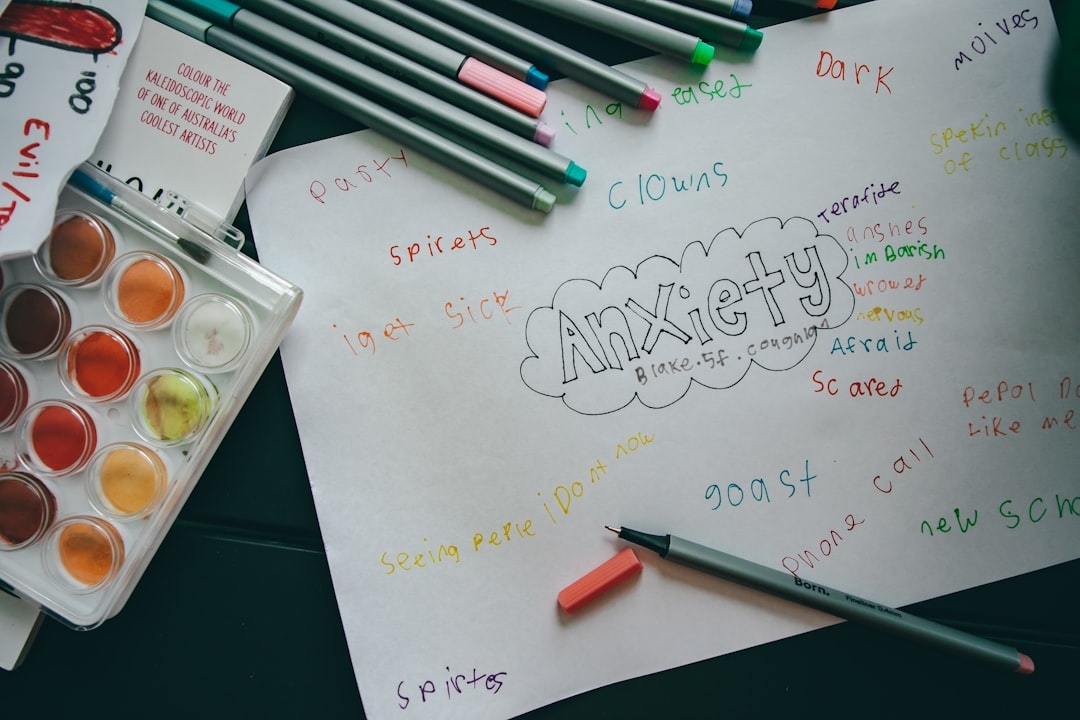 100
Evil/
COLOUR THE
KALEIDOSCOPIC WORLD
OF ONE OF AUSTRALIA'S
COOLEST ARTISTS
moives
Dark
ing easer
spekin
of class
party
Clowns
Terafite
spirets
anshes
imBarish
Anxiety
wrower
i get sick
nervous
Blake.5f.
Afraid
Scared
pepol
Like me
seeing peple i Dont now
goast
phone call
new
Born.
Fineliner 0.4mm
spirtes